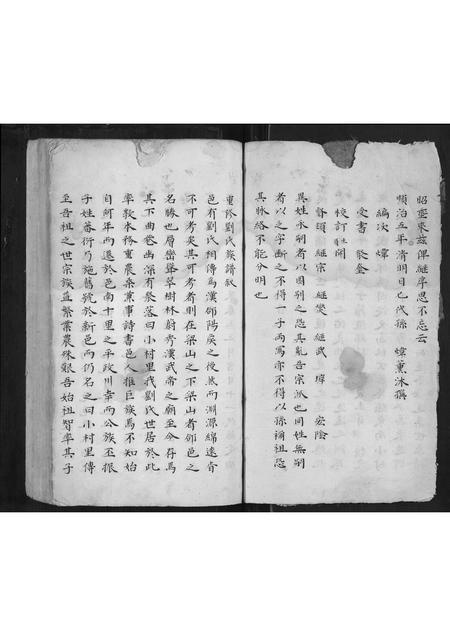 昭垂來兹俾繼序思不忘云
順治五年清明日七代孫 煒薰沐撰
編次 煒
受書 聚奎
校訂 肚閑
督頌 繼宗 繼變 繼武 瑋 宏陰
異姓承嗣者以圈別之恐其亂吾宗派也同姓無嗣
者以之字斷之不得一子兩寫亦不得以孫禰祖恐
其脉絡不能分明也
重修劉氏族譜敘
邑有劉氏相傳為漢郃陽矦之後然而淵源綿遠杳
不可考矣其可考者則在梁山之下梁山者郃邑之
名勝也層巒聳翠樹林蔚秀漢武帝之廟至今存焉
其下曲巷幽深有聚落曰小村里我劉氏世居於此
率教本務重農桒業事詩書邑人推巨族焉不知始
自何年而遷於邑南十里之平政川幸而公族丕振
子姓蕃衍乃施舊號於新邑而仍名之曰小村里傳
至吾祖之世宗族益繁業農殊艱吾始祖智率其子